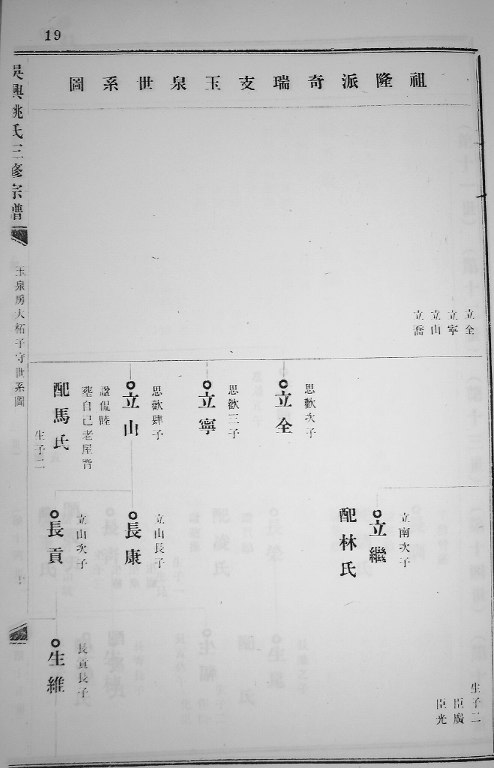 19
祖隆派奇瑞支玉泉世系圖
吳興姚氏三修宗譜
立全
立寧
立山
立喬
思歡次子
立全
思歡三子
立寧
思歡肆子
立山
諡侃睦
墓自己老屋背
配馬氏
生子二
立南次子
立繼
配林氏
生子二
臣廣
臣光
立山長子
長康
立山次子
長貢
長貢長子
生維